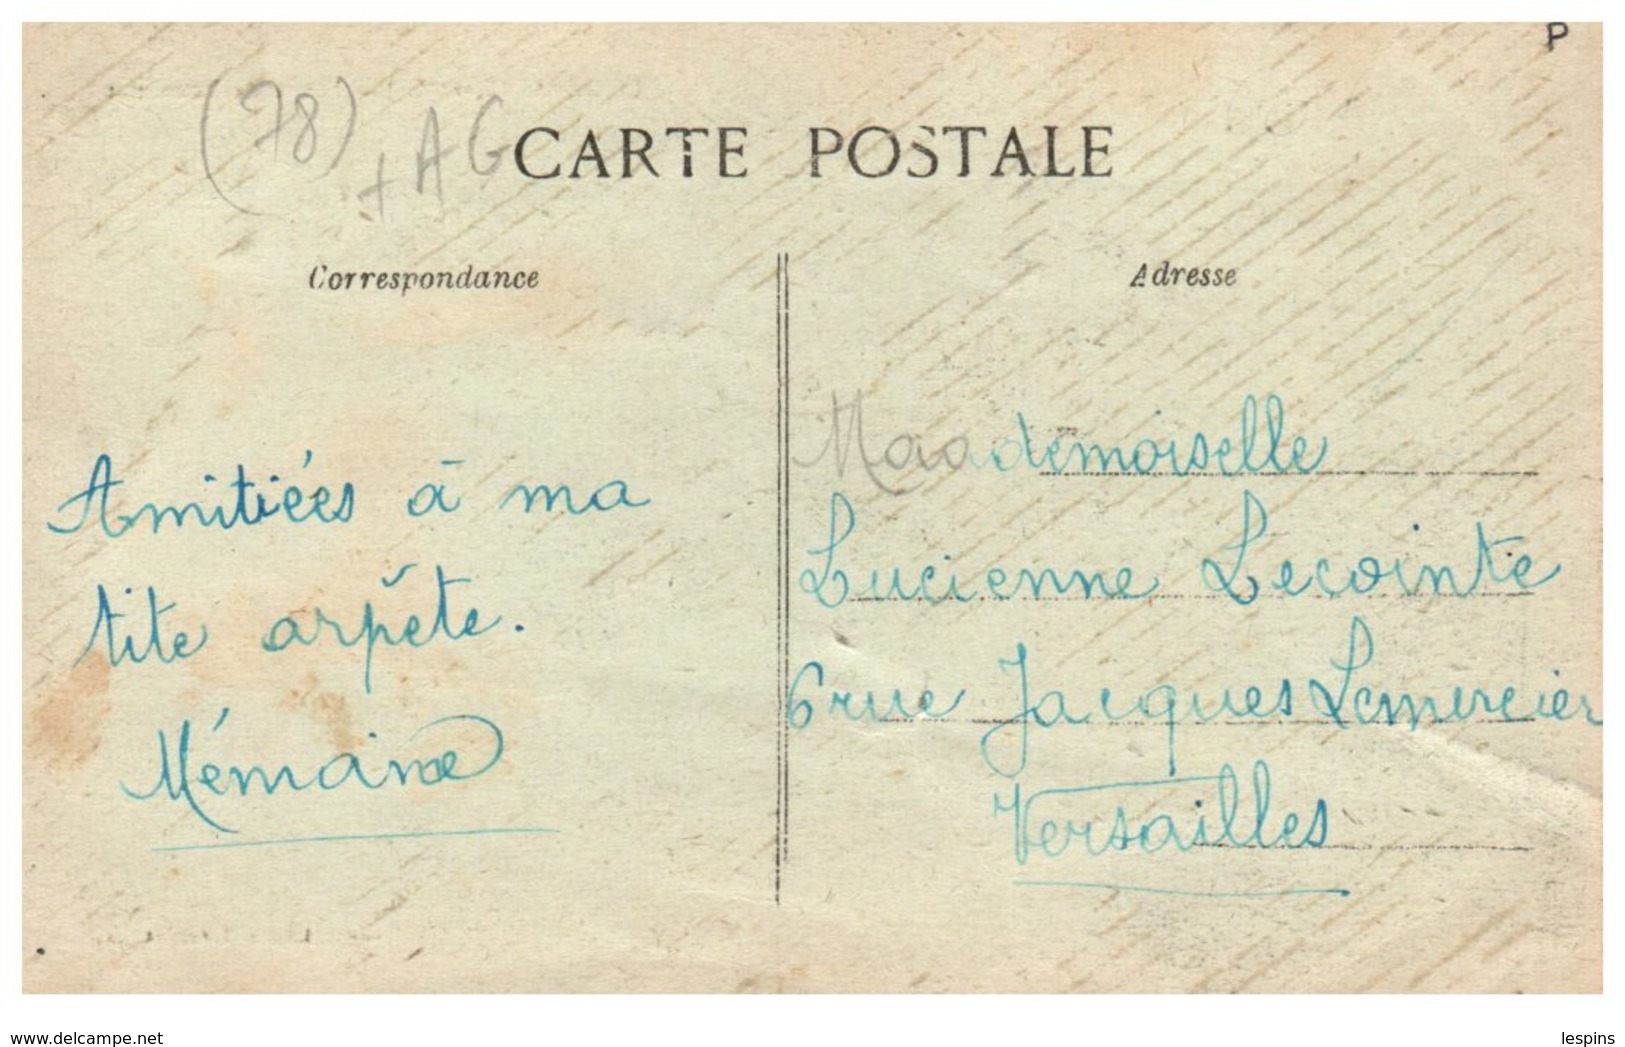 P
(78)
+ AG
CARTE POSTALE
Correspondance
Amitiées à ma
tite arpête.
Mémaine
Adresse
Mademoiselle
Lucienne Lecointe
6 rue Jacques Lemercier
Versailles
www.delcampe.net
lespins